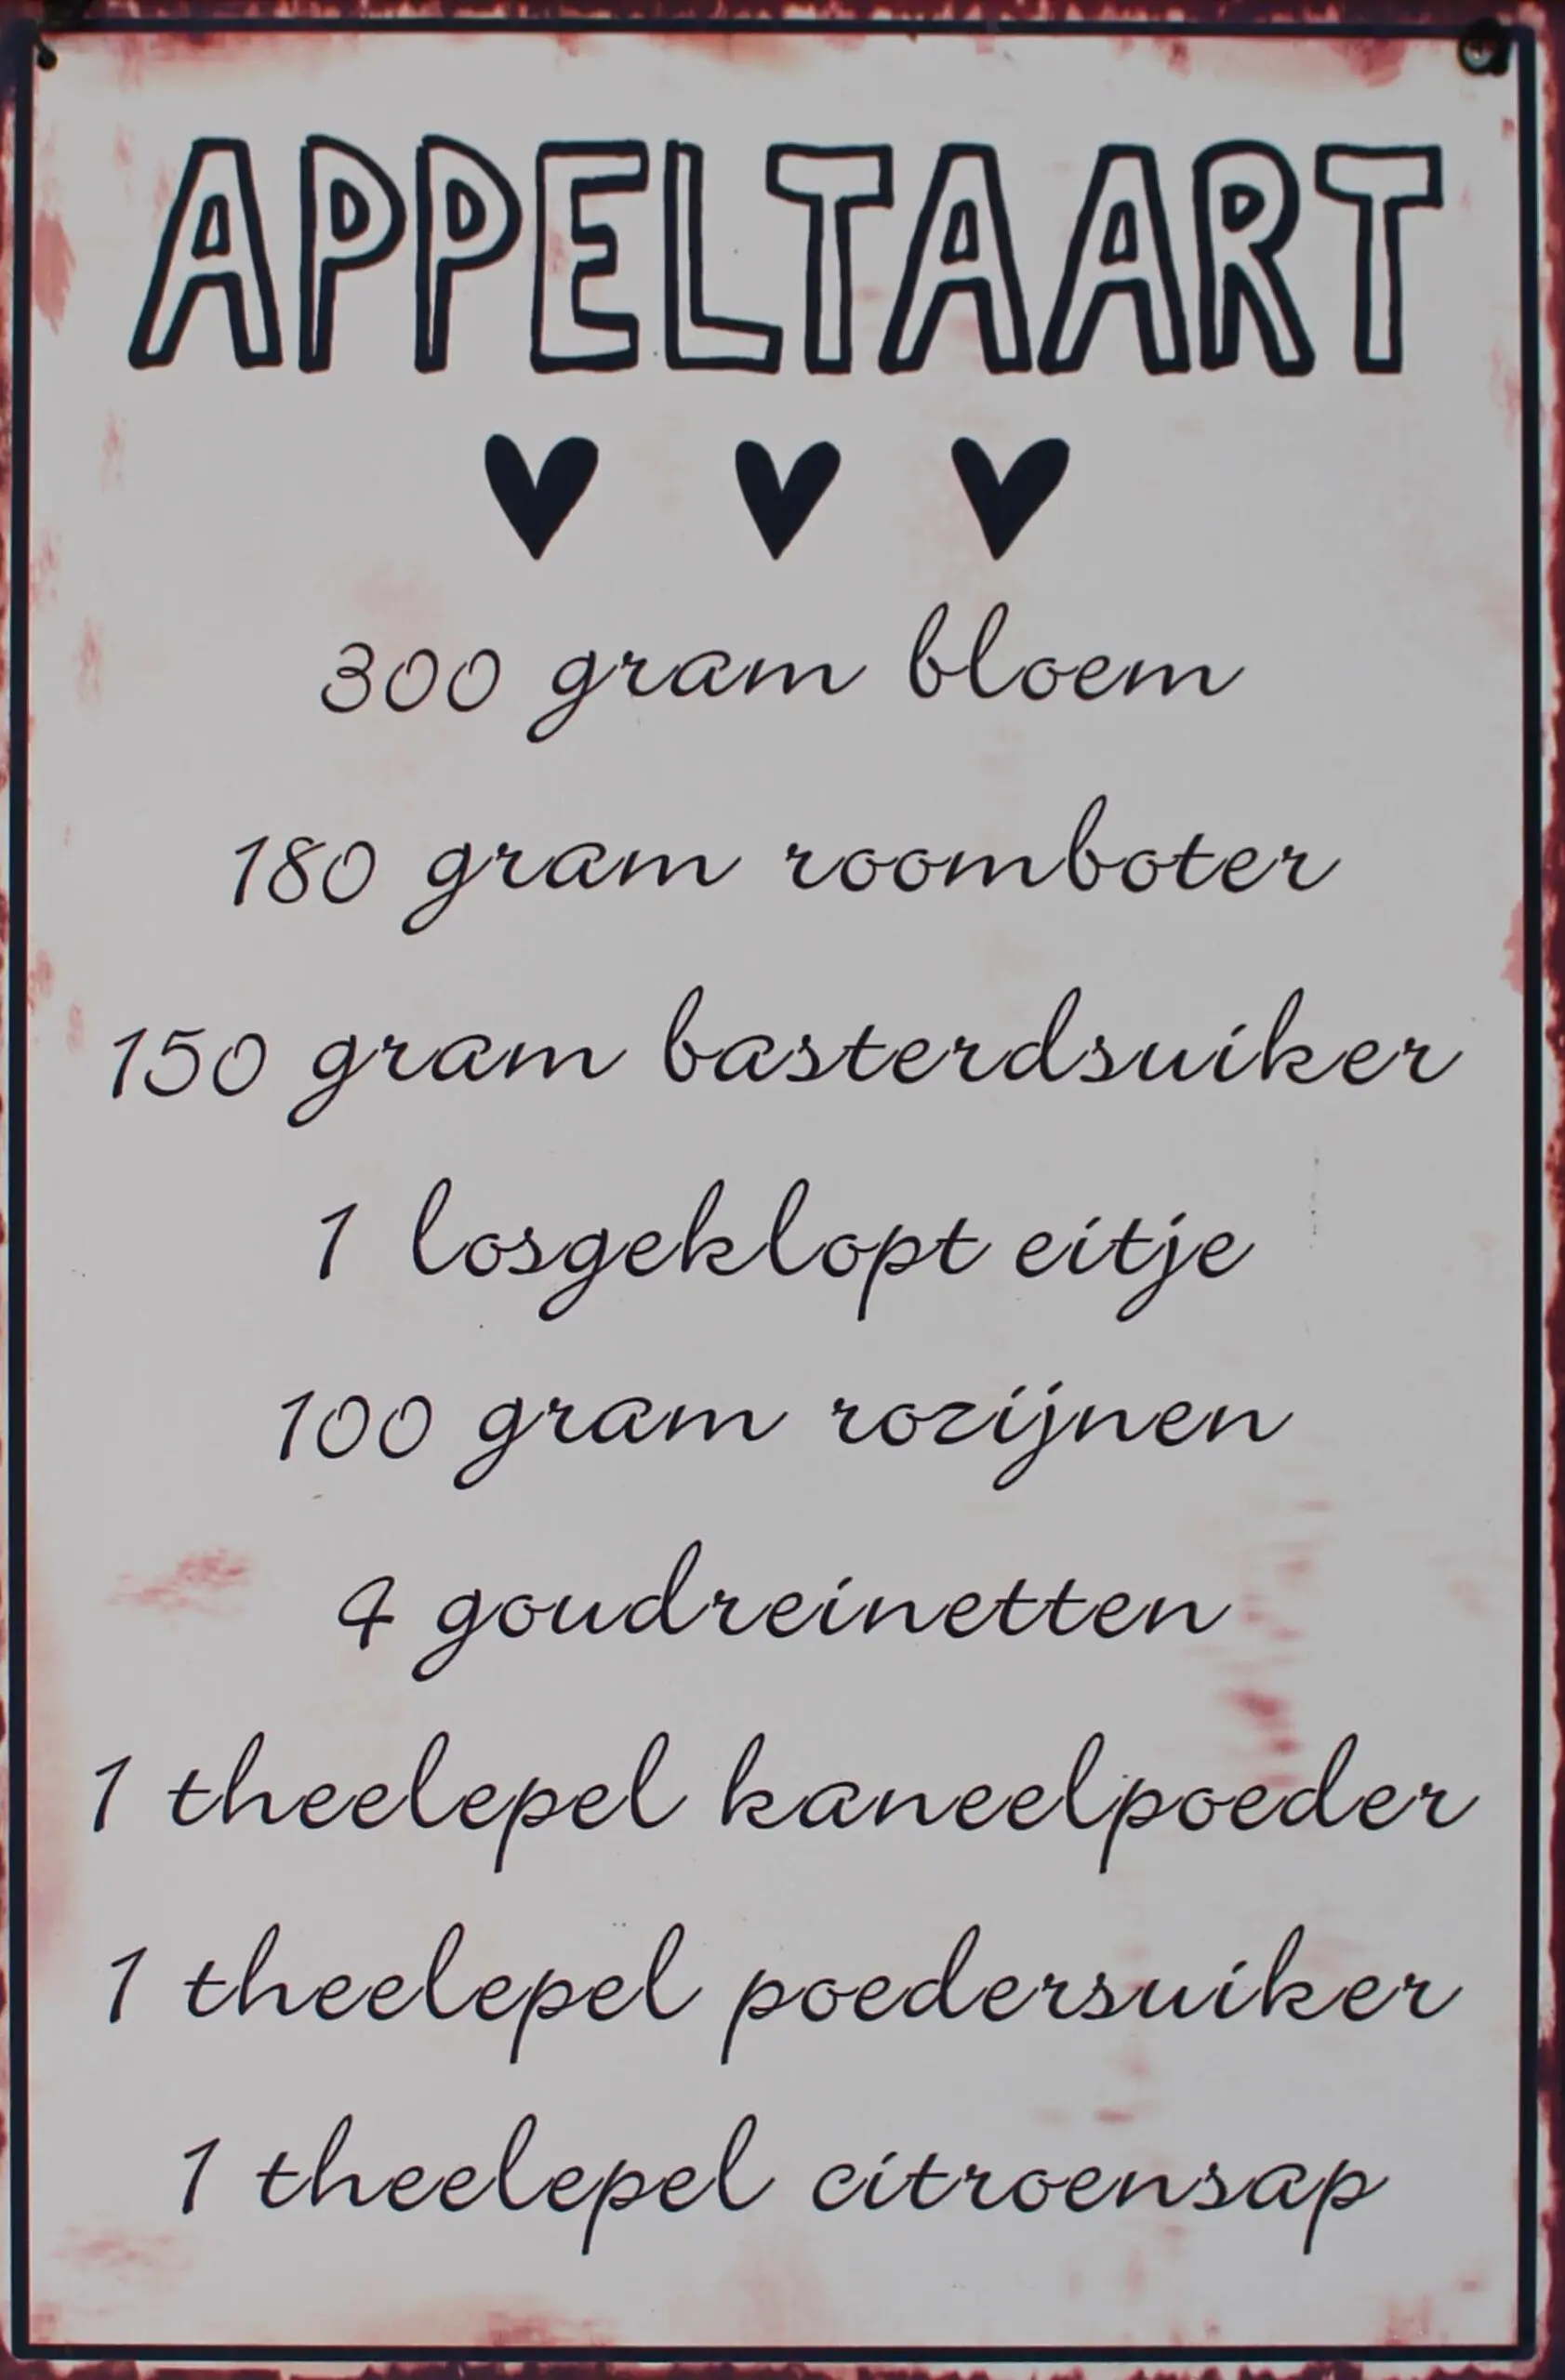 APPELTAART
300 gram bloem
180 gram roomboter
150 gram basterdsuiker
1 losgeklopt eitje
100 gram rozijnen
4 goudreinetten
1 theelepel kaneelpoeder
1 theelepel poedersuiker
1 theelepel citroensap